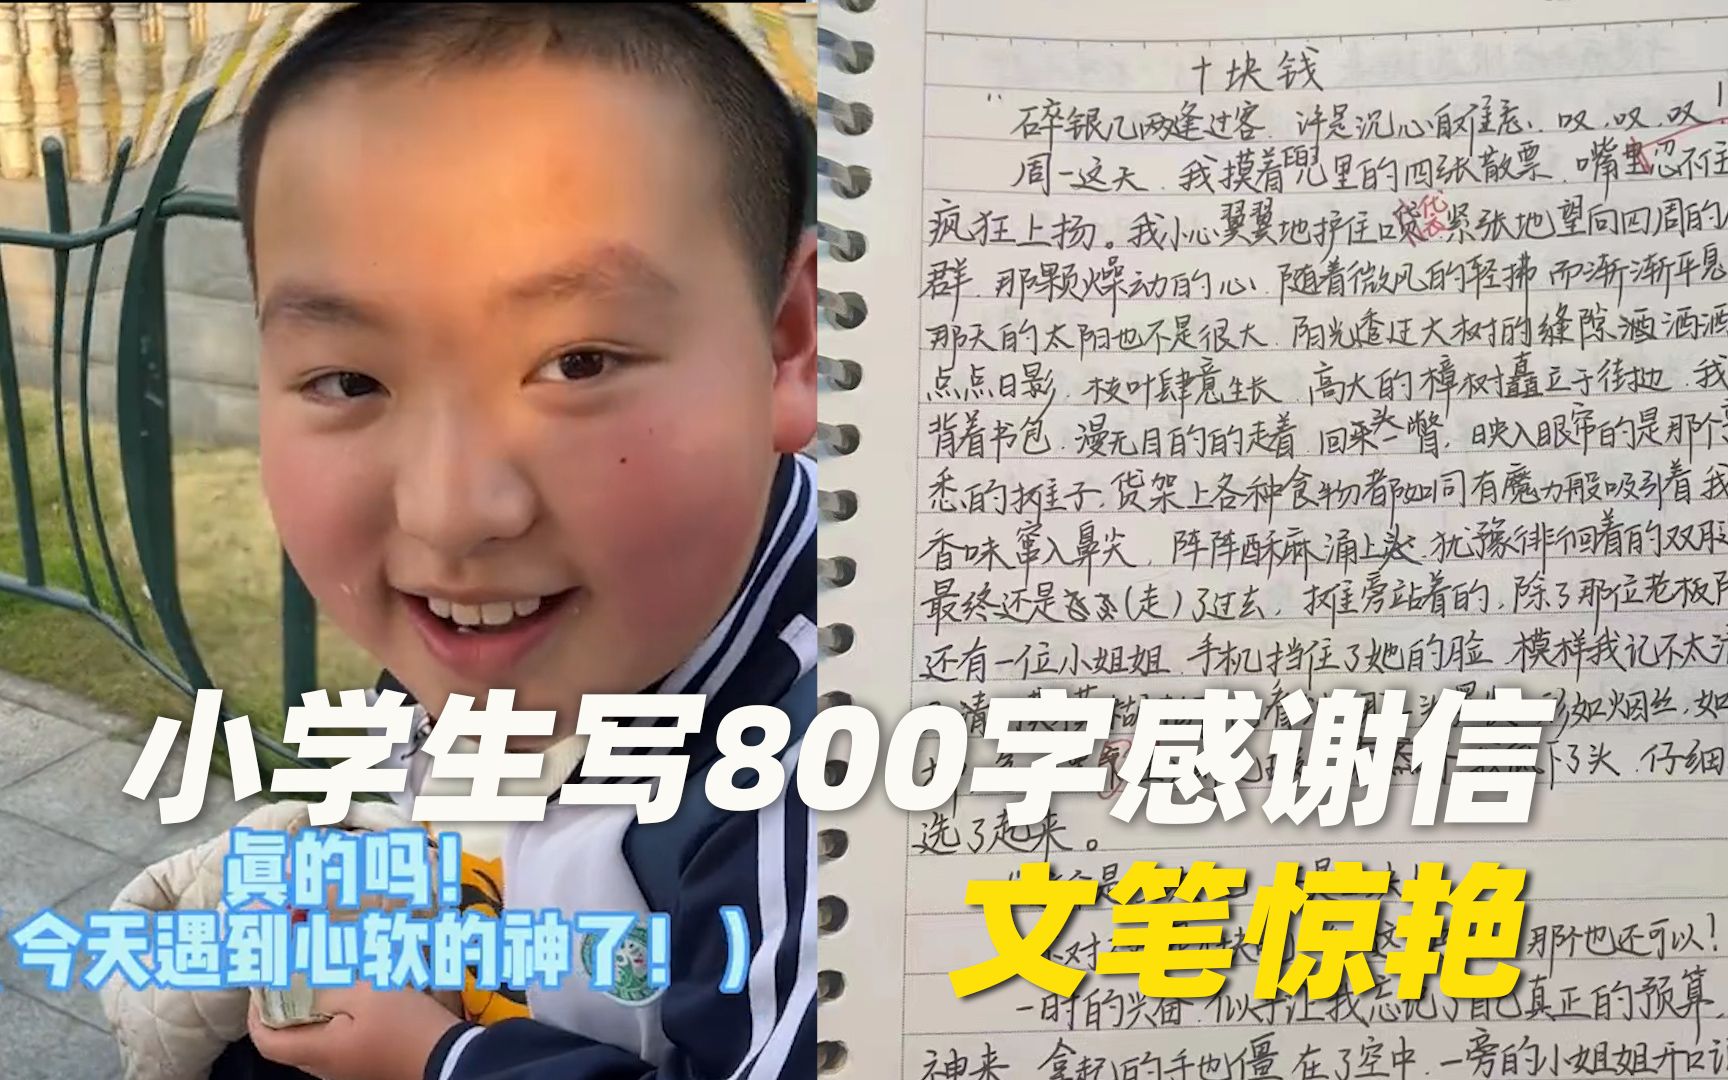 十块钱
"碎银几两逢过客,许是沉心自难忘,叹,叹,叹!
周一这天,我摸着兜里的四张散票,嘴里忍不住
疯狂上扬。我小心翼翼地护住口袋紧张地望向四周的人
群,那颗燥动的心,随着微风的轻拂而渐渐平息
那天的太阳也不是很大,阳光透过大树的缝隙洒洒洒
点点日影,枝叶肆意生长,高大的樟树矗立于街边,我
背着书包,漫无目的的走着,回头一瞥,映入眼帘的是那个
悉的摊子,货架上各种食物都如同有魔力般吸引着我
香味窜入鼻尖,阵阵酥麻涌上头,犹豫徘徊着的双腿
最终还是(走)了过去,摊旁站着的,除了那位老板
还有一位小姐姐,手机挡住了她的脸,模样我记不太清
形如烟丝,如
下了头,仔细
选了起来。
那个也还可以!
一时的兴奋,似乎让我忘记了自己真正的预算,
神来,拿起的手也僵在了空中,一旁的小姐姐开口
小学生写800字感谢信
文笔惊艳
真的吗!
今天遇到心软的神了!)